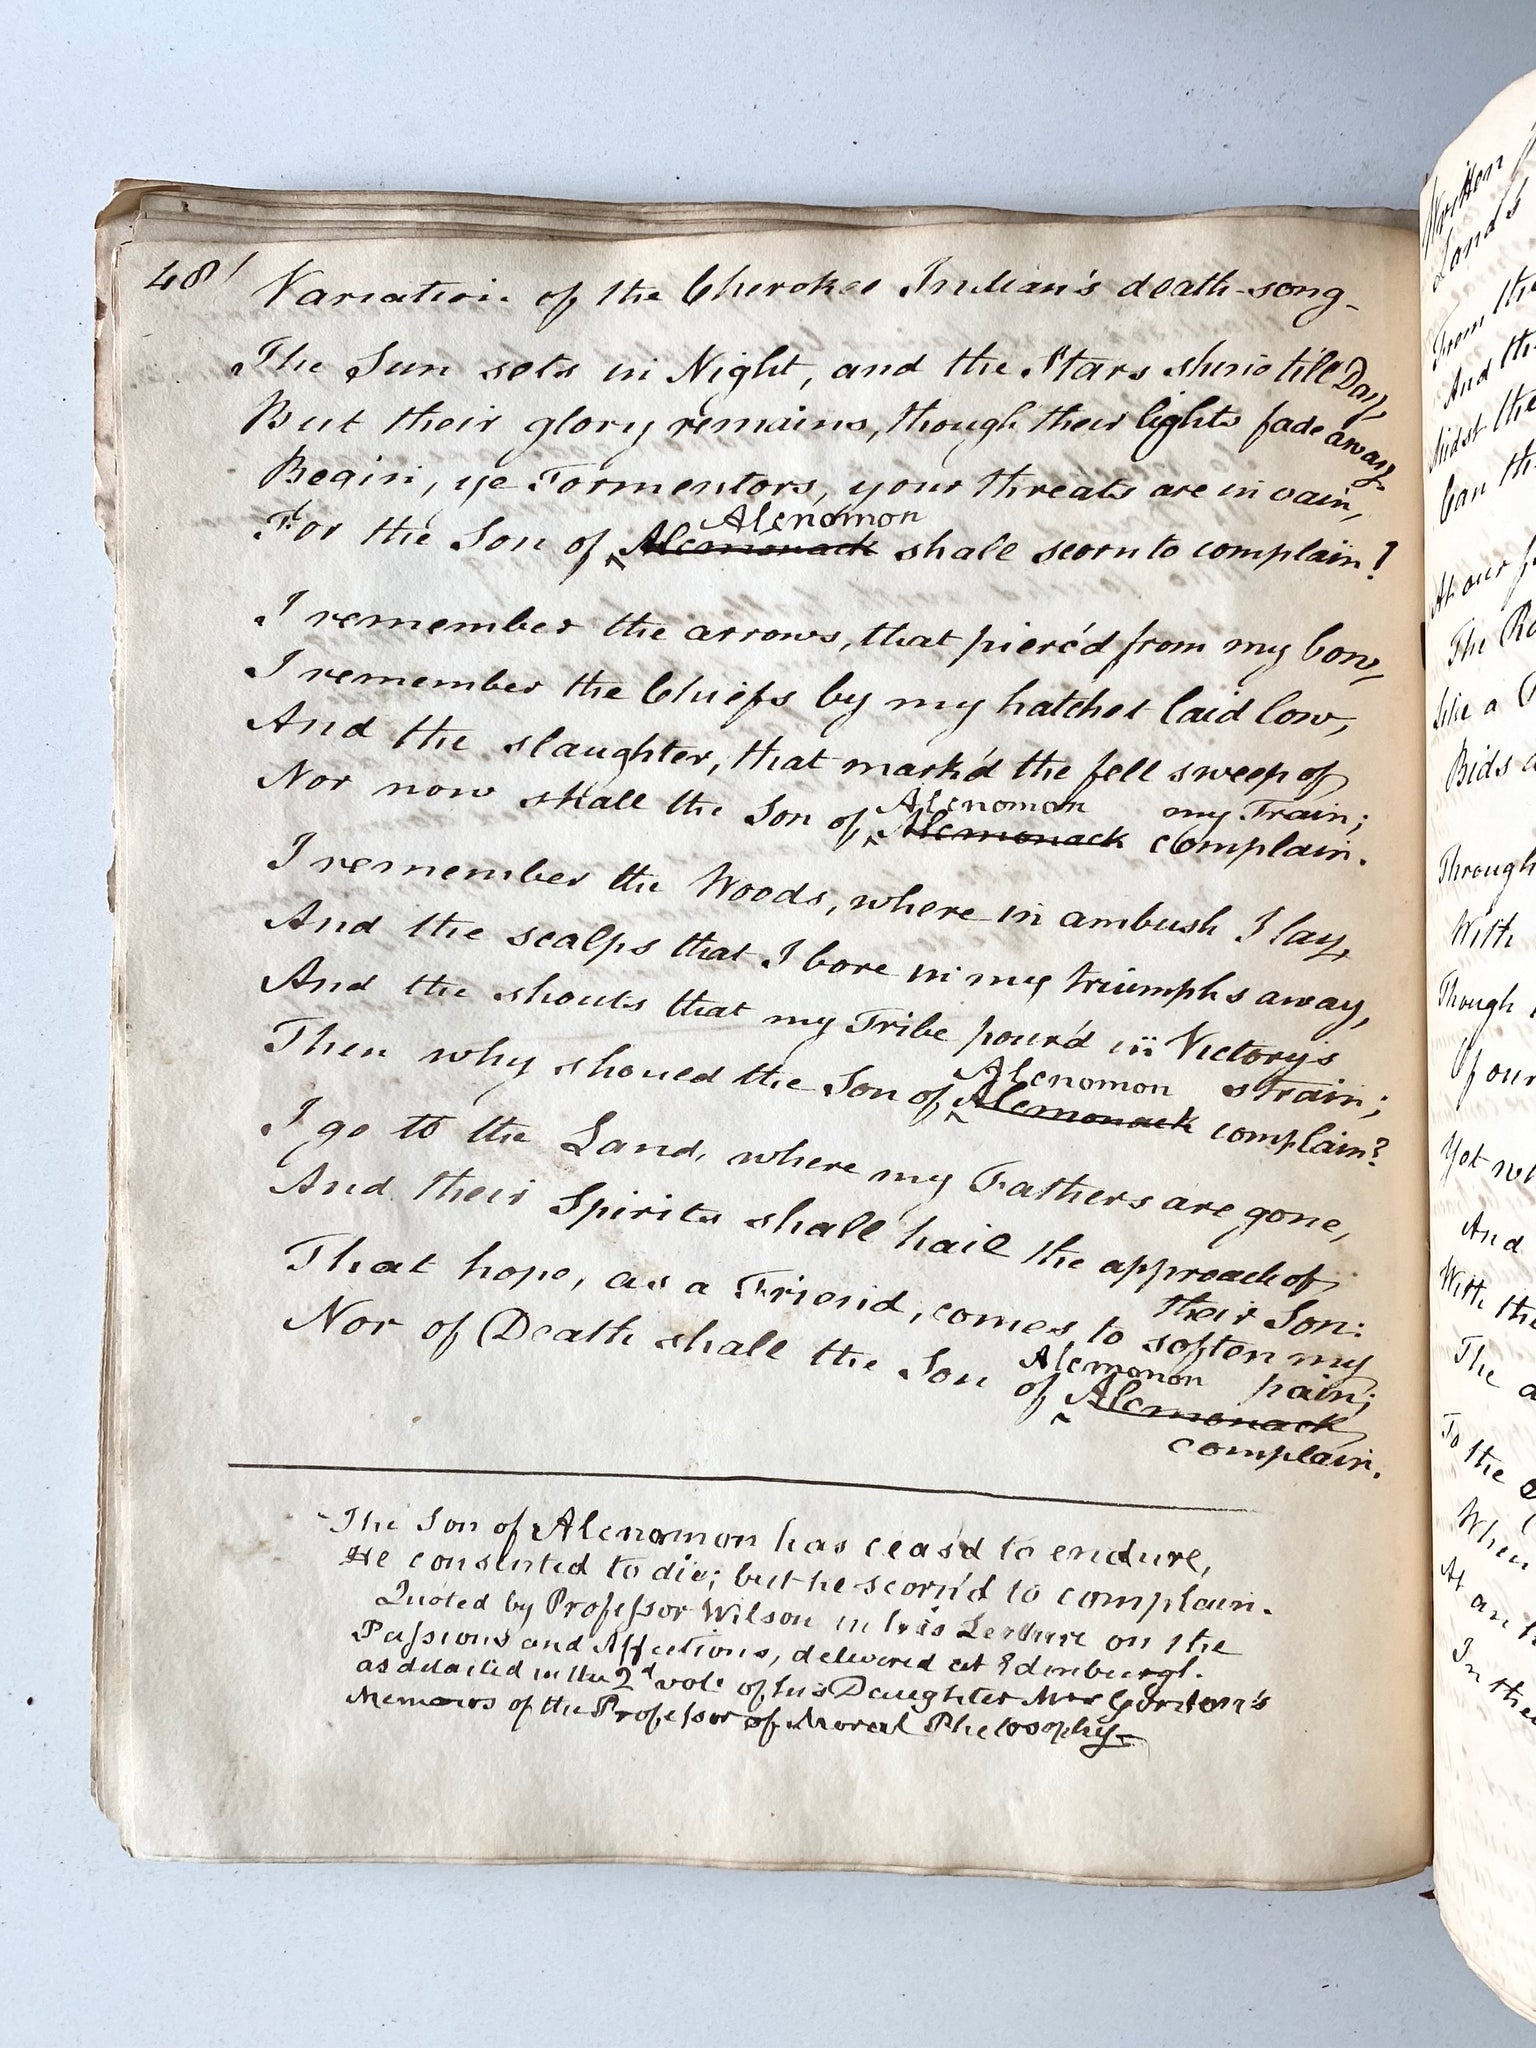 48
Variation of the Cherokee Indian's death-song-
The Sun sets in Night, and the Stars shine till Day,
But their glory remains, though their lights fade away.
Begin, ye Tormentors, your threats are in vain,
For the Son of Alenomon Alemonack shall scorn to complain!
I remember the arrows, that pierc'd from my bow,
I remember the Chiefs by my hatchet laid low,
And the slaughter, that mark'd the fell sweep of
my Train;
Nor now shall the Son of Alenomon Alemonack complain.
I remember the Woods, where in ambush I lay,
And the scalps that I bore in my triumphs away,
And the shouts that my Tribe pour'd in Victory's
strain;
Then why should the Son of Alenomon Alemonack complain?
I go to the Land, where my Fathers are gone,
And their Spirits shall hail the approach of
their Son:
That hope, as a Friend, comes to soften my
pain;
Nor of Death shall the Son of Alemonon Alemonack
complain.
The Son of Alenomon has ceas'd to endure,
He consented to die; but he scorn'd to complain.
Quoted by Professor Wilson in his Lecture on the
Passions and Affections, delivered at Edinburgh.
as detailed in the 2d vol: of his Daughter Mrs Gordon's
Memoirs of the Professor of Moral Philosophy-
Written
Land's
From the
And th
Midst the
Can th
At our f
The Ro
Like a
Bids a
Through
With
Though
Of our
Yet wh
And
With the
The a
To the
When
At an
In the